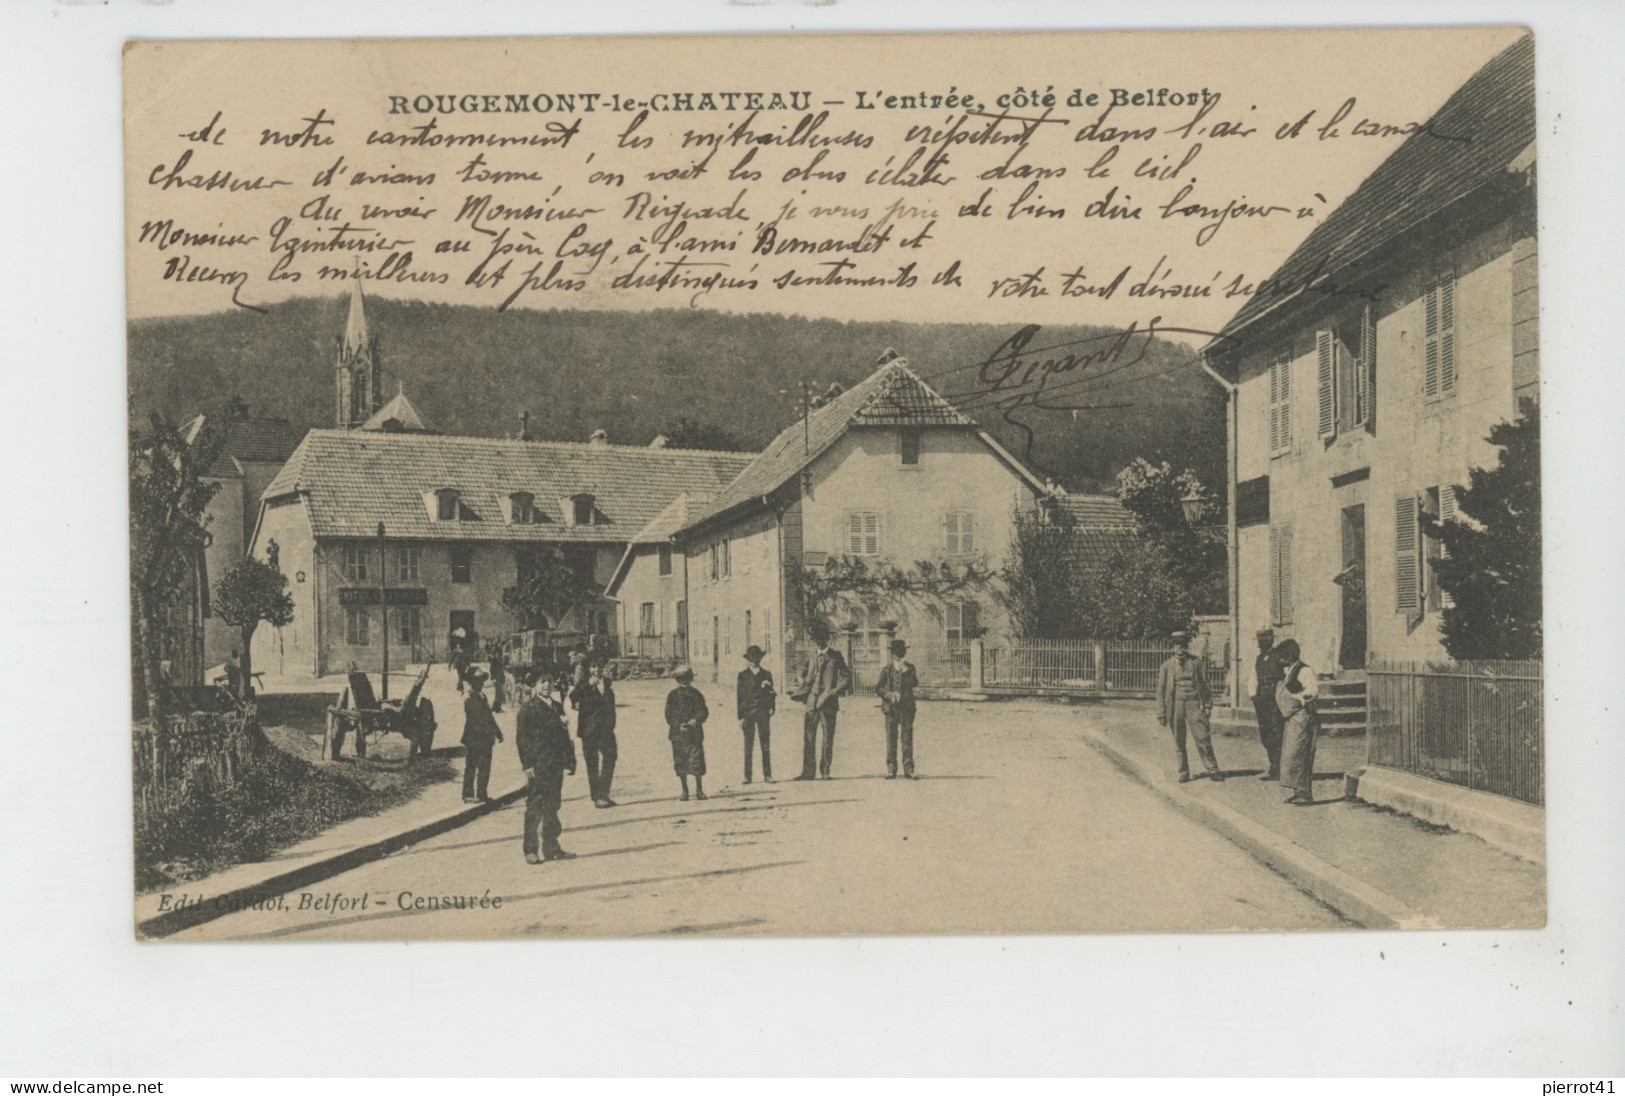 ROUGEMONT-le-CHATEAU — L'entrée, côté de Belfort
de notre cantonnement, les mitrailleuses crépitent dans l'air et le canon
chasseur d'avions tonne, on voit les obus éclater dans le ciel.
Au revoir Monsieur Rigeade, je vous prie de bien dire bonjour à
Monsieur Tginturier au père Coq, à l'ami Bernardet et
Recevez les meilleurs et plus distingués sentiments de votre tout dévoué secrétaire
Gizant
Edit. Cardot, Belfort - Censurée
www.delcampe.net
pierrot41